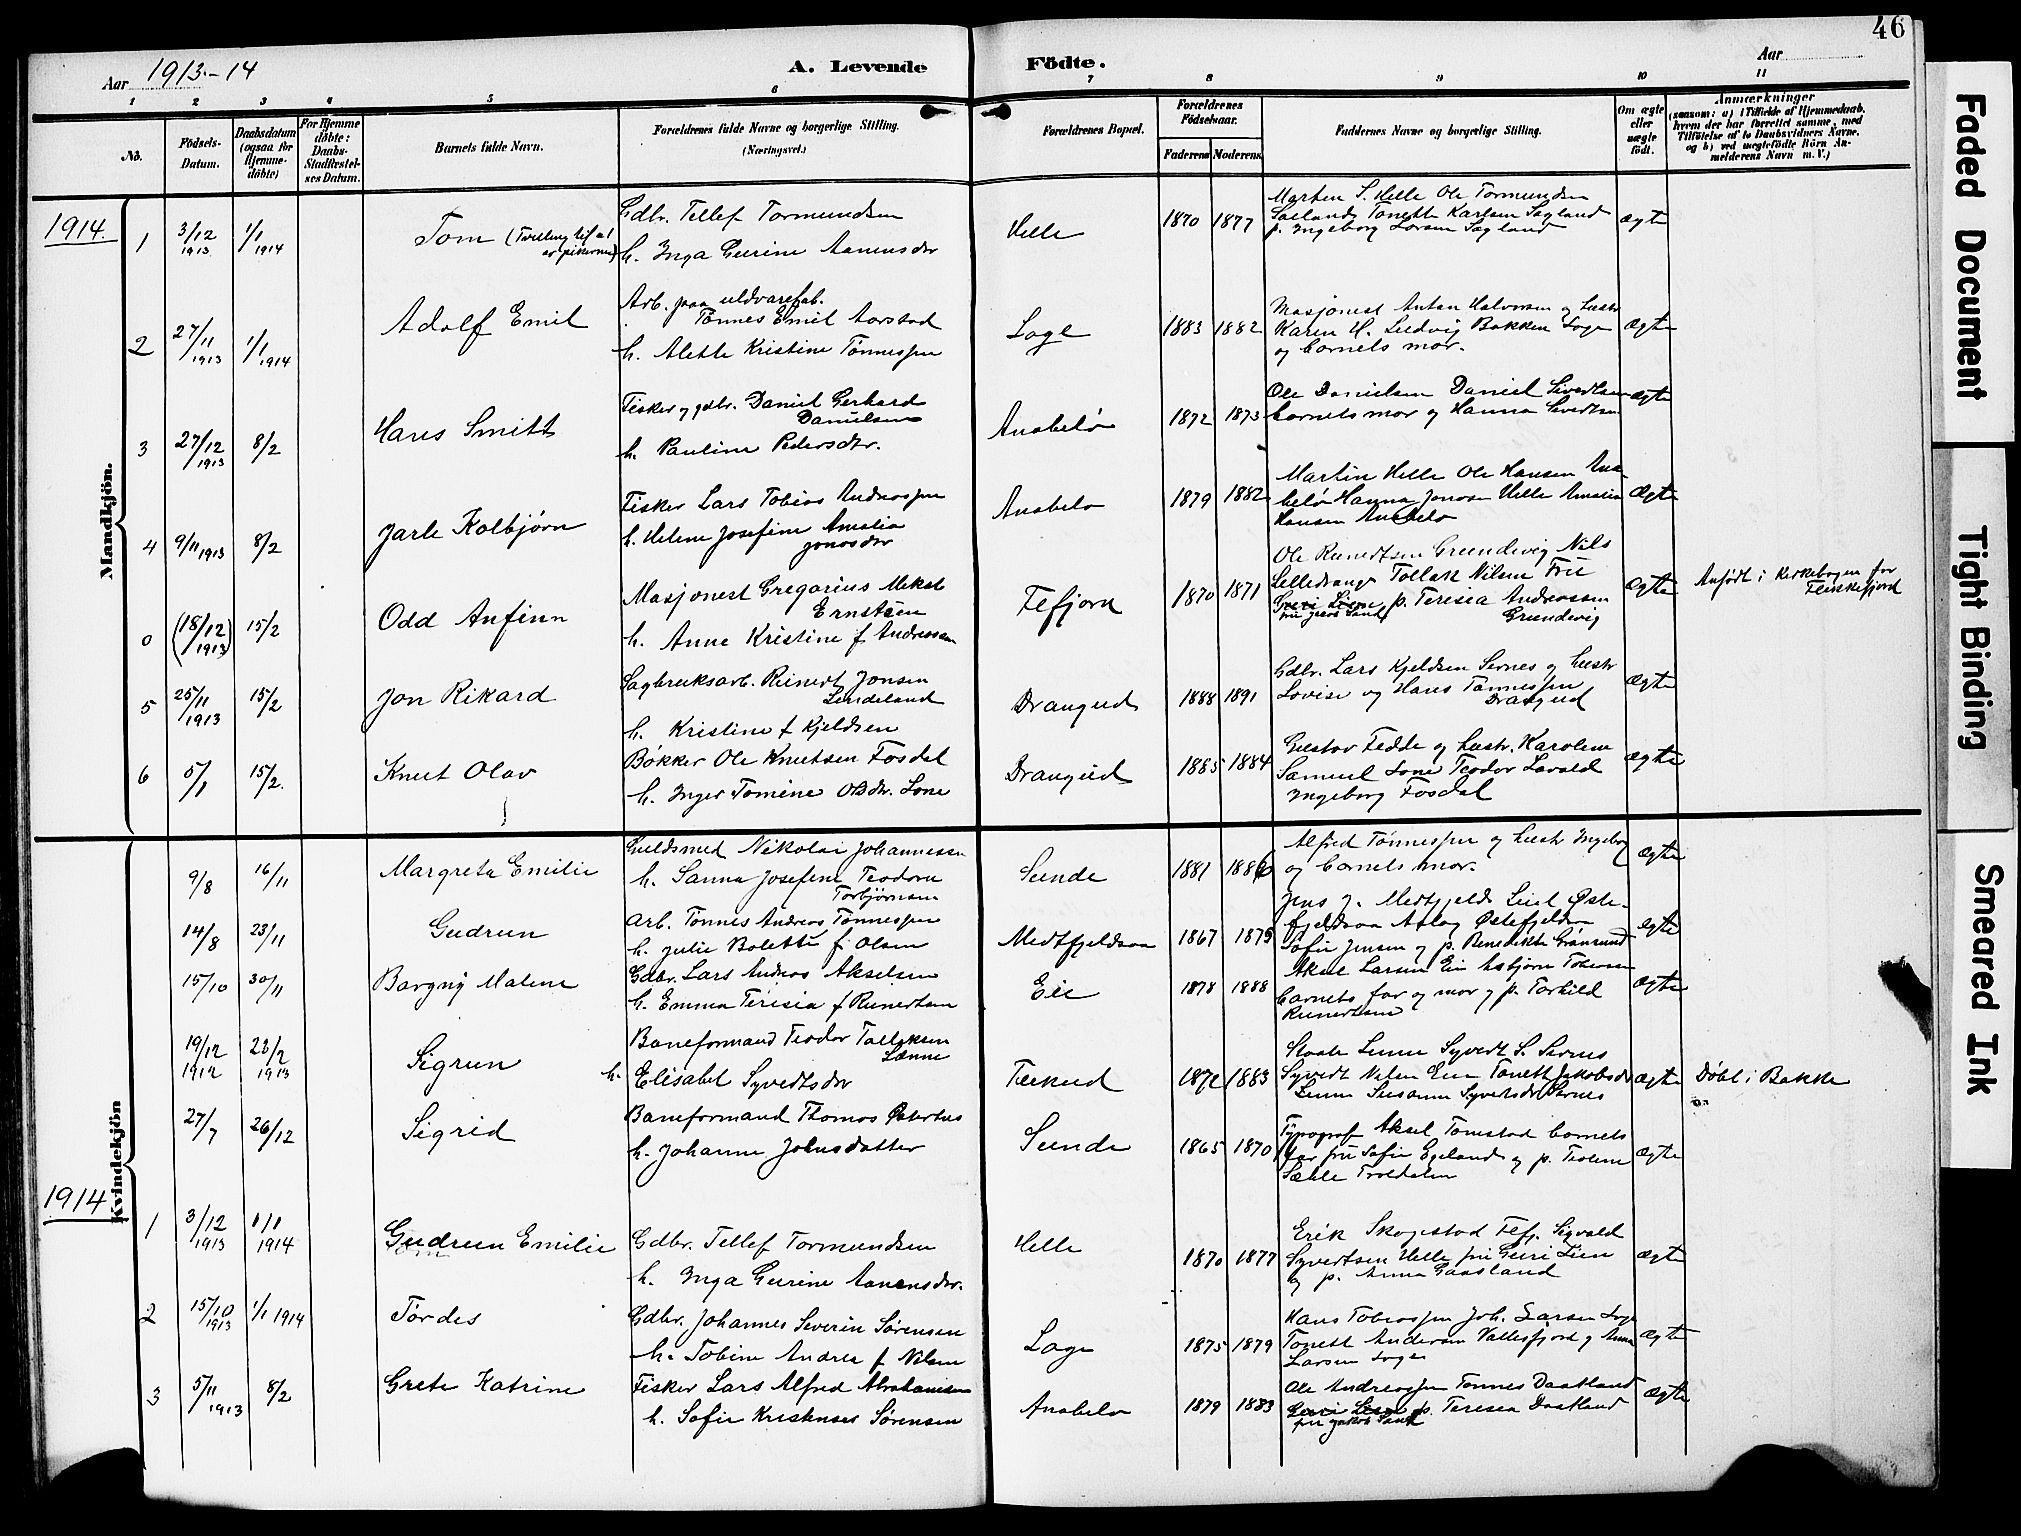 46
Aar 1913.-14
A. Levende Födte.
Aar
1 2 3 4 5 6 7 8 9 10 11
No.
Födsels-Datum.
Daabsdatum (ogsaa for Hjemme-döbte)
For Hjemme döbte: Daabs-Stadfæstelses Datum.
Barnets fulde Navn.
Forældrenes fulde Navne og borgerlige Stilling. (Næringsvei.)
Forældrenes Bopæl.
Forældrenes Födselsaar.
Faderens Moderens
Faddernes Navne og borgerlige Stilling.
Om ægte eller uægte födt.
Anmærkninger
(saasom: a) i Tilfælde af Hjemmedaab, hvem der har forrettet samme, med Tilföielse af to Daabsvidners Navne, og b) ved uægtefödte Börn Anmelderens Navn m. V.)
Mandkjön.
1914.
1 3/12 1913 1/1 1914 Tom (Tvilling til al av pikerne)
Gdbr. Tellef Tormundsen
h. Inga Gurine Aanensdtr
Helle 1870 1877
Marten S. Helle Ole Tormundsen
Tonette Karlsen Sagland
p. Ingeborg Larsen Sagland
ægte
2 27/11 1913 1/1 1914 Adolf Emil
Arb. paa uldvarefab.
Tønnes Emil Aarstad
h. Alette Kristine Tønnessen
Loge 1883 1882
Masjonest Anton Halvorsen og hustr
Karen H. Ludvig Bakken Loge
og barnets mor.
Ægte
3 27/12 1913 8/2 Hans Smitt
Fisker og gdbr. Daniel Gerhard
Danielsen
h. Pauline Pedersdtr.
Anabelø 1872 1873
Ole Danielsen Daniel Sivertsen
barnets mor og Hanna Sivertsen
ægte
4 9/11 1913 8/2 Jarle Kolbjørn
Fisker Lars Tobias Andreassen
h. Helene Josefine Amalia
Jonasdtr
Anabelø 1879 1882
Martin Helle Ole Hansen Ana-
belø Hanna Jonasen Helle Amalia
Hansen Anabelø
Ægte
0 (18/12 1913) 15/2 Odd Anfinn
Masjonest Gregorius Mikal
Ernstsen
h. Anne Kristine f Andreassen
Fefjord 1870 1871
Ole Reinertsen Grundevig Nils
Tollak Nilsen Frue
Guri Liene p. Teresia Andreassen
Grundevig
Ægte
Anført i Kirkebogen for
Flekkefjord
5 25/11 1913 15/2 Jon Rikard
Sagbruksarb. Reinert Jonsen
Lindeland
h. Kristine f Kjeldsen
Drangeid 1888 1891
Gdbr. Lars Kjeldsen Sernes og hustr
Lovise og Hans Tønnessen
Drangeid
Ægte
6 5/1 15/2. Knut Olav
Bøkker Ole Knutsen Fosdal
h. Inger Tomine OBdtr. Lone
Drangeid 1885 1884
Gustav Fedde og hustr. Karoline
Samuel Lone Teodor Lavold
Ingeborg Fosdal
Ægte
Kvindekjön
9/8 16/11 Margreta Emilie
Guldsmed Nikolai Johannessen
h. Sanna Josefine Teodora
Torbjørnsen
Sunde 1881 1886
Alfred Tønnessen og hustr Ingeborg
og barnets mor.
Ægte
14/8 23/11 Gudrun
Arb. Tønnes Andreas Tønnessen
h. Julie Bolette f. Olsen
Medtfjeldsaa 1867 1875
Jens J. Medtfjeldsaa
Aslag Østefjeldsaa
Sofie Jensen og p. Benedikte Grønsund
Ægte
15/10 30/11 Borgny Malene
Gdbr. Lars Andreas Akselsen
h. Emma Teresia f Reinertsen
Eie 1878 1888
Aksel Larsen Eie Asbjørn Tobiassen
barnets far og mor og p. Torhild
Reinertsen
Ægte
19/12 1912 23/2 1913 Sigrun
Baneformand Teodor Tallaksen
Lænne
h. Elisabet Syvertsdtr
1872 1883
Syvert S. Sernes
Syvert Eie Tonette Jakobsdtr
Susanne Syvertsdtr Sernes
ægte Døbt i Bakke
27/7 26/12 Sigrid
Baneformand Thomas Østerhus
h. Johanne Johnsdatter
Sunde 1865 1870
Typograf Aksel Tonstad barnets
far fru Sofie Egeland og p. Teoline
Ægte
1914
1 3/12 1913 1/1 1914 Gudrun Emilie
Gdbr. Tellef Tormundsen
h. Inga Gurine Aanensdtr.
Helle 1870 1877
Erik Skogestad Fefj. Sigvald
Syvertsen Helle fru Guri Lien
og p. Anna Gaasland
Ægte
2 15/10 1913 1/1 1914 Tordes
Gdbr. Johannes Severin Sørensen
h. Tobine Andrea f Nilsen
Loge 1875 1879
Hans Tobiassen Joh. Larsen Loge
Tonette Andersen og Anna
Larsen Loge
Ægte
3 5/11 1913 8/2 Grete Katrine
Fisker Lars Alfred Abrahamsen
h. Sofie Kristense Sørensen
Anabelø 1879 1883
Ole Andreassen Tønnes Daatland
p. Teresia Daatland
Ægte
Faded Document
Tight Binding
Smeared Ink